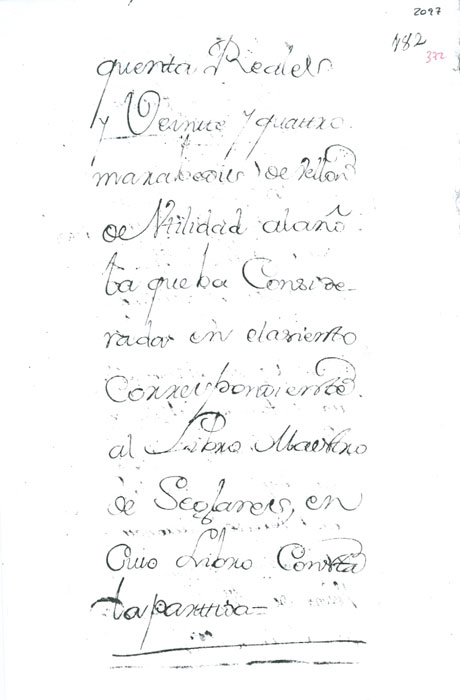 2097
182
372
quenta Reales
y Veinte y quattro
marabedies de Vellon
de Utilidad al año
la que ba Conside-
rada en el asiento
Correspondiente
al Libro Maestro
de Seglares, en
Cuio Libro Consta
la partida=